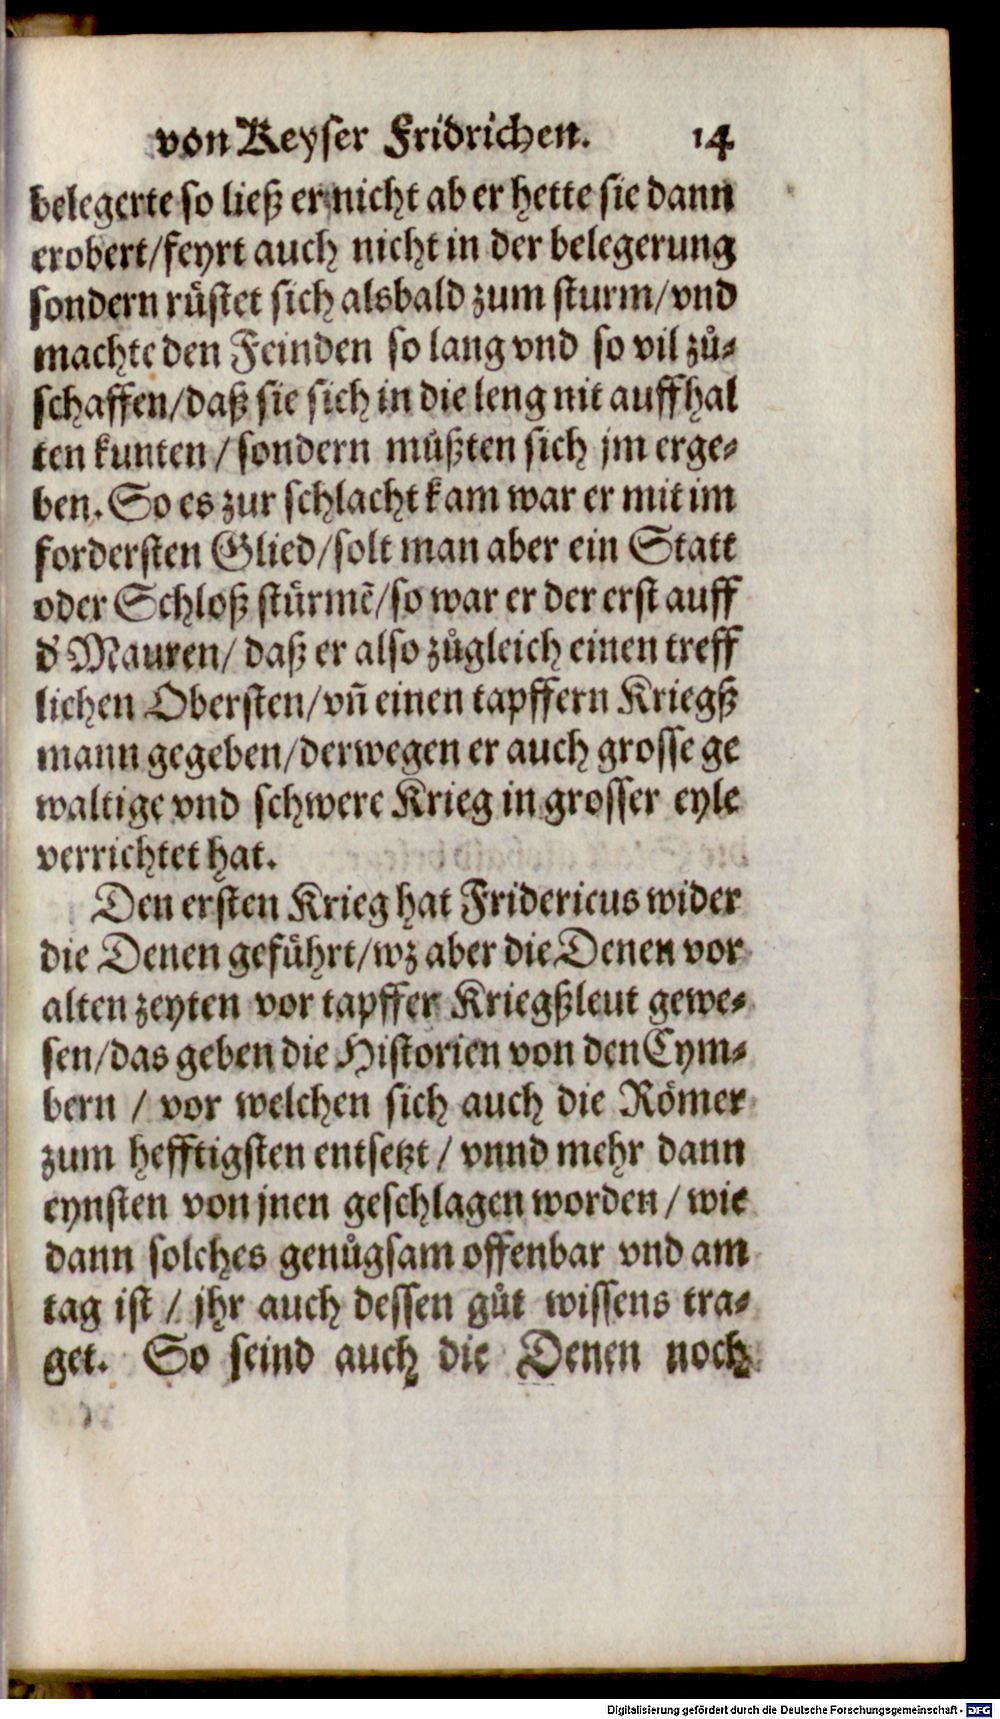 von Keyser Fridrichen. 14
belegerte so ließ er nicht ab er hette sie dann
erobert/feyrt auch nicht in der belegerung
sondern rüstet sich alsbald zum sturm/vnd
machte den Feinden so lang vnd so vil zů-
schaffen/daß sie sich in die leng nit auffhal
ten kunten/sondern můßten sich jm erge-
ben. So es zur schlacht kam war er mit im
fordersten Glied/solt man aber ein Statt
oder Schloß stürmē/so war er der erst auff
d' Mauren/daß er also zůgleich einen treff
lichen Obersten/vn̄ einen tapffern Kriegß
mann gegeben/derwegen er auch grosse ge
waltige vnd schwere Krieg in grosser eyle
verrichtet hat.
Den ersten Krieg hat Fridericus wider
die Denen geführt/wz aber die Denen vor
alten zeyten vor tapffer Kriegßleut gewe-
sen/das geben die Historien von den Cym-
bern / vor welchen sich auch die Römer
zum hefftigsten entsetzt / vnnd mehr dann
eynsten von jnen geschlagen worden / wie
dann solches genůgsam offenbar vnd am
tag ist / jhr auch dessen gůt wissens tra-
get. So seind auch die Denen noch
Digitalisierung gefördert durch die Deutsche Forschungsgemeinschaft - DFG